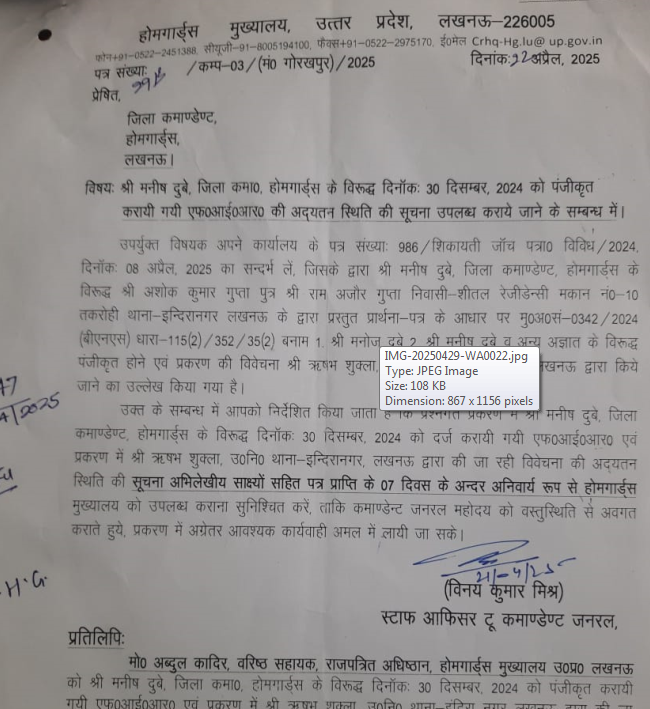 होमगार्ड्स मुख्यालय, उत्तर प्रदेश, लखनऊ-226005
फोन+91-0522-2451388, सीयूजी-91-8005194100, फैक्स+91-0522-2975170, ई0मेल Crhq-Hg.lu@ up.gov.in
पत्र संख्याः /कम्प-03/(मं0 गोरखपुर)/2025 दिनांकः22अप्रैल, 2025
प्रेषित,
जिला कमाण्डेण्ट,
होमगार्ड्स,
लखनऊ।
विषयः श्री मनीष दुबे, जिला कमा0, होमगार्ड्स के विरूद्ध दिनॉकः 30 दिसम्बर, 2024 को पंजीकृत
करायी गयी एफ0आई0आर0 की अद्यतन स्थिति की सूचना उपलब्ध कराये जाने के सम्बन्ध में।
उपर्युक्त विषयक अपने कार्यालय के पत्र संख्याः 986/शिकायती जॉच पत्रा0 विविध/2024,
दिनॉकः 08 अप्रैल, 2025 का सन्दर्भ लें, जिसके द्वारा श्री मनीष दुबे, जिला कमाण्डेण्ट, होमगार्ड्स के
विरूद्ध श्री अशोक कुमार गुप्ता पुत्र श्री राम अजौर गुप्ता निवासी-शीतल रेजीडेन्सी मकान नं0-10
तकरोही थाना-इन्दिरानगर लखनऊ के द्वारा प्रस्तुत प्रार्थना-पत्र के आधार पर मु0अ0सं-0342/2024
(बीएनएस) धारा-115(2)/352/35(2) बनाम 1. श्री मनोज दुबे 2. श्री मनीष दुबे व अन्य अज्ञात के विरूद्ध
पंजीकृत होने एवं प्रकरण की विवेचना श्री ऋषभ शुक्ला, लखनऊ द्वारा किये
जाने का उल्लेख किया गया है।
IMG-20250429-WA0022.jpg
Type: JPEG Image
Size: 108 KB
Dimension: 867 x 1156 pixels
उक्त के सम्बन्ध में आपको निर्देशित किया जाता है कि प्रश्नगत प्रकरण में श्री मनीष दुबे, जिला
कमाण्डेण्ट, होमगार्ड्स के विरूद्ध दिनॉकः 30 दिसम्बर, 2024 को दर्ज करायी गयी एफ0आई0आर0 एवं
प्रकरण में श्री ऋषभ शुक्ला, उ0नि0 थाना-इन्दिरानगर, लखनऊ द्वारा की जा रही विवेचना की अद्यतन
स्थिति की सूचना अभिलेखीय साक्ष्यों सहित पत्र प्राप्ति के 07 दिवस के अन्दर अनिवार्य रूप से होमगार्ड्स
मुख्यालय को उपलब्ध कराना सुनिश्चित करें, ताकि कमाण्डेन्ट जनरल महोदय को वस्तुस्थिति से अवगत
कराते हुये, प्रकरण में अग्रेतर आवश्यक कार्यवाही अमल में लायी जा सके।
4/2025
H.G.
21-4/25
(विनय कुमार मिश्र)
स्टाफ आफिसर टू कमाण्डेण्ट जनरल,
प्रतिलिपिः
मो0 अब्दुल कादिर, वरिष्ठ सहायक, राजपत्रित अधिष्ठान, होमगार्ड्स मुख्यालय उ0प्र0 लखनऊ
को श्री मनीष दुबे, जिला कमा0, होमगार्ड्स के विरूद्ध दिनॉकः 30 दिसम्बर, 2024 को पंजीकृत करायी
गयी एफ0आई0आर0 एवं प्रकरण में श्री ऋषभ शुक्ला, उ0नि0